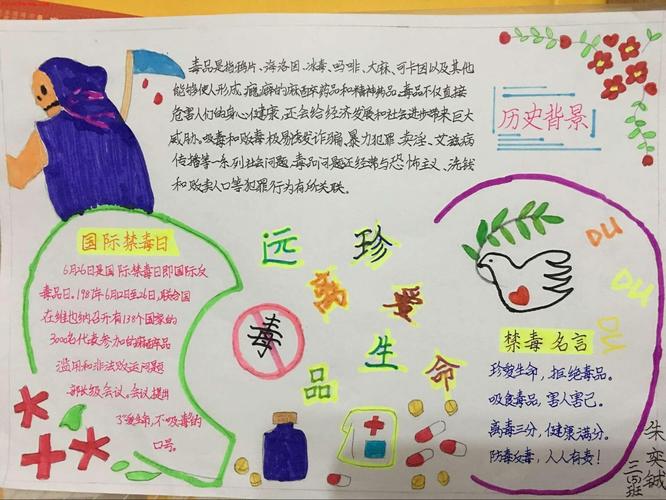 毒品是指鸦片、海洛因、冰毒、吗啡、大麻、可卡因以及其他
能够使人形成瘾癖的麻醉药品和精神药品。毒品不仅直接
危害人们的身心健康,还会给经济发展和社会进步带来巨大
威胁。吸毒和贩毒极易诱发诈骗、暴力犯罪、卖淫、艾滋病
传播等一系列社会问题。毒品问题还经常与恐怖主义、洗钱
和贩卖人口等犯罪行为有所关联。
历史背景
国际禁毒日
6月26日是国际禁毒日即国际反
毒品日。1987年6月12日至26日,联合国
在维也纳召开有138个国家的
3000名代表参加的麻醉品
滥用和非法贩运问题
部长级会议,会议提出
了爱生命,不吸毒的
口号。
远离毒品
珍爱生命
DU
DU
DU
DU
禁毒名言
珍爱生命,拒绝毒品。
吸食毒品,害人害己。
离毒三分,健康满分。
防毒反毒,人人有责!
三四班